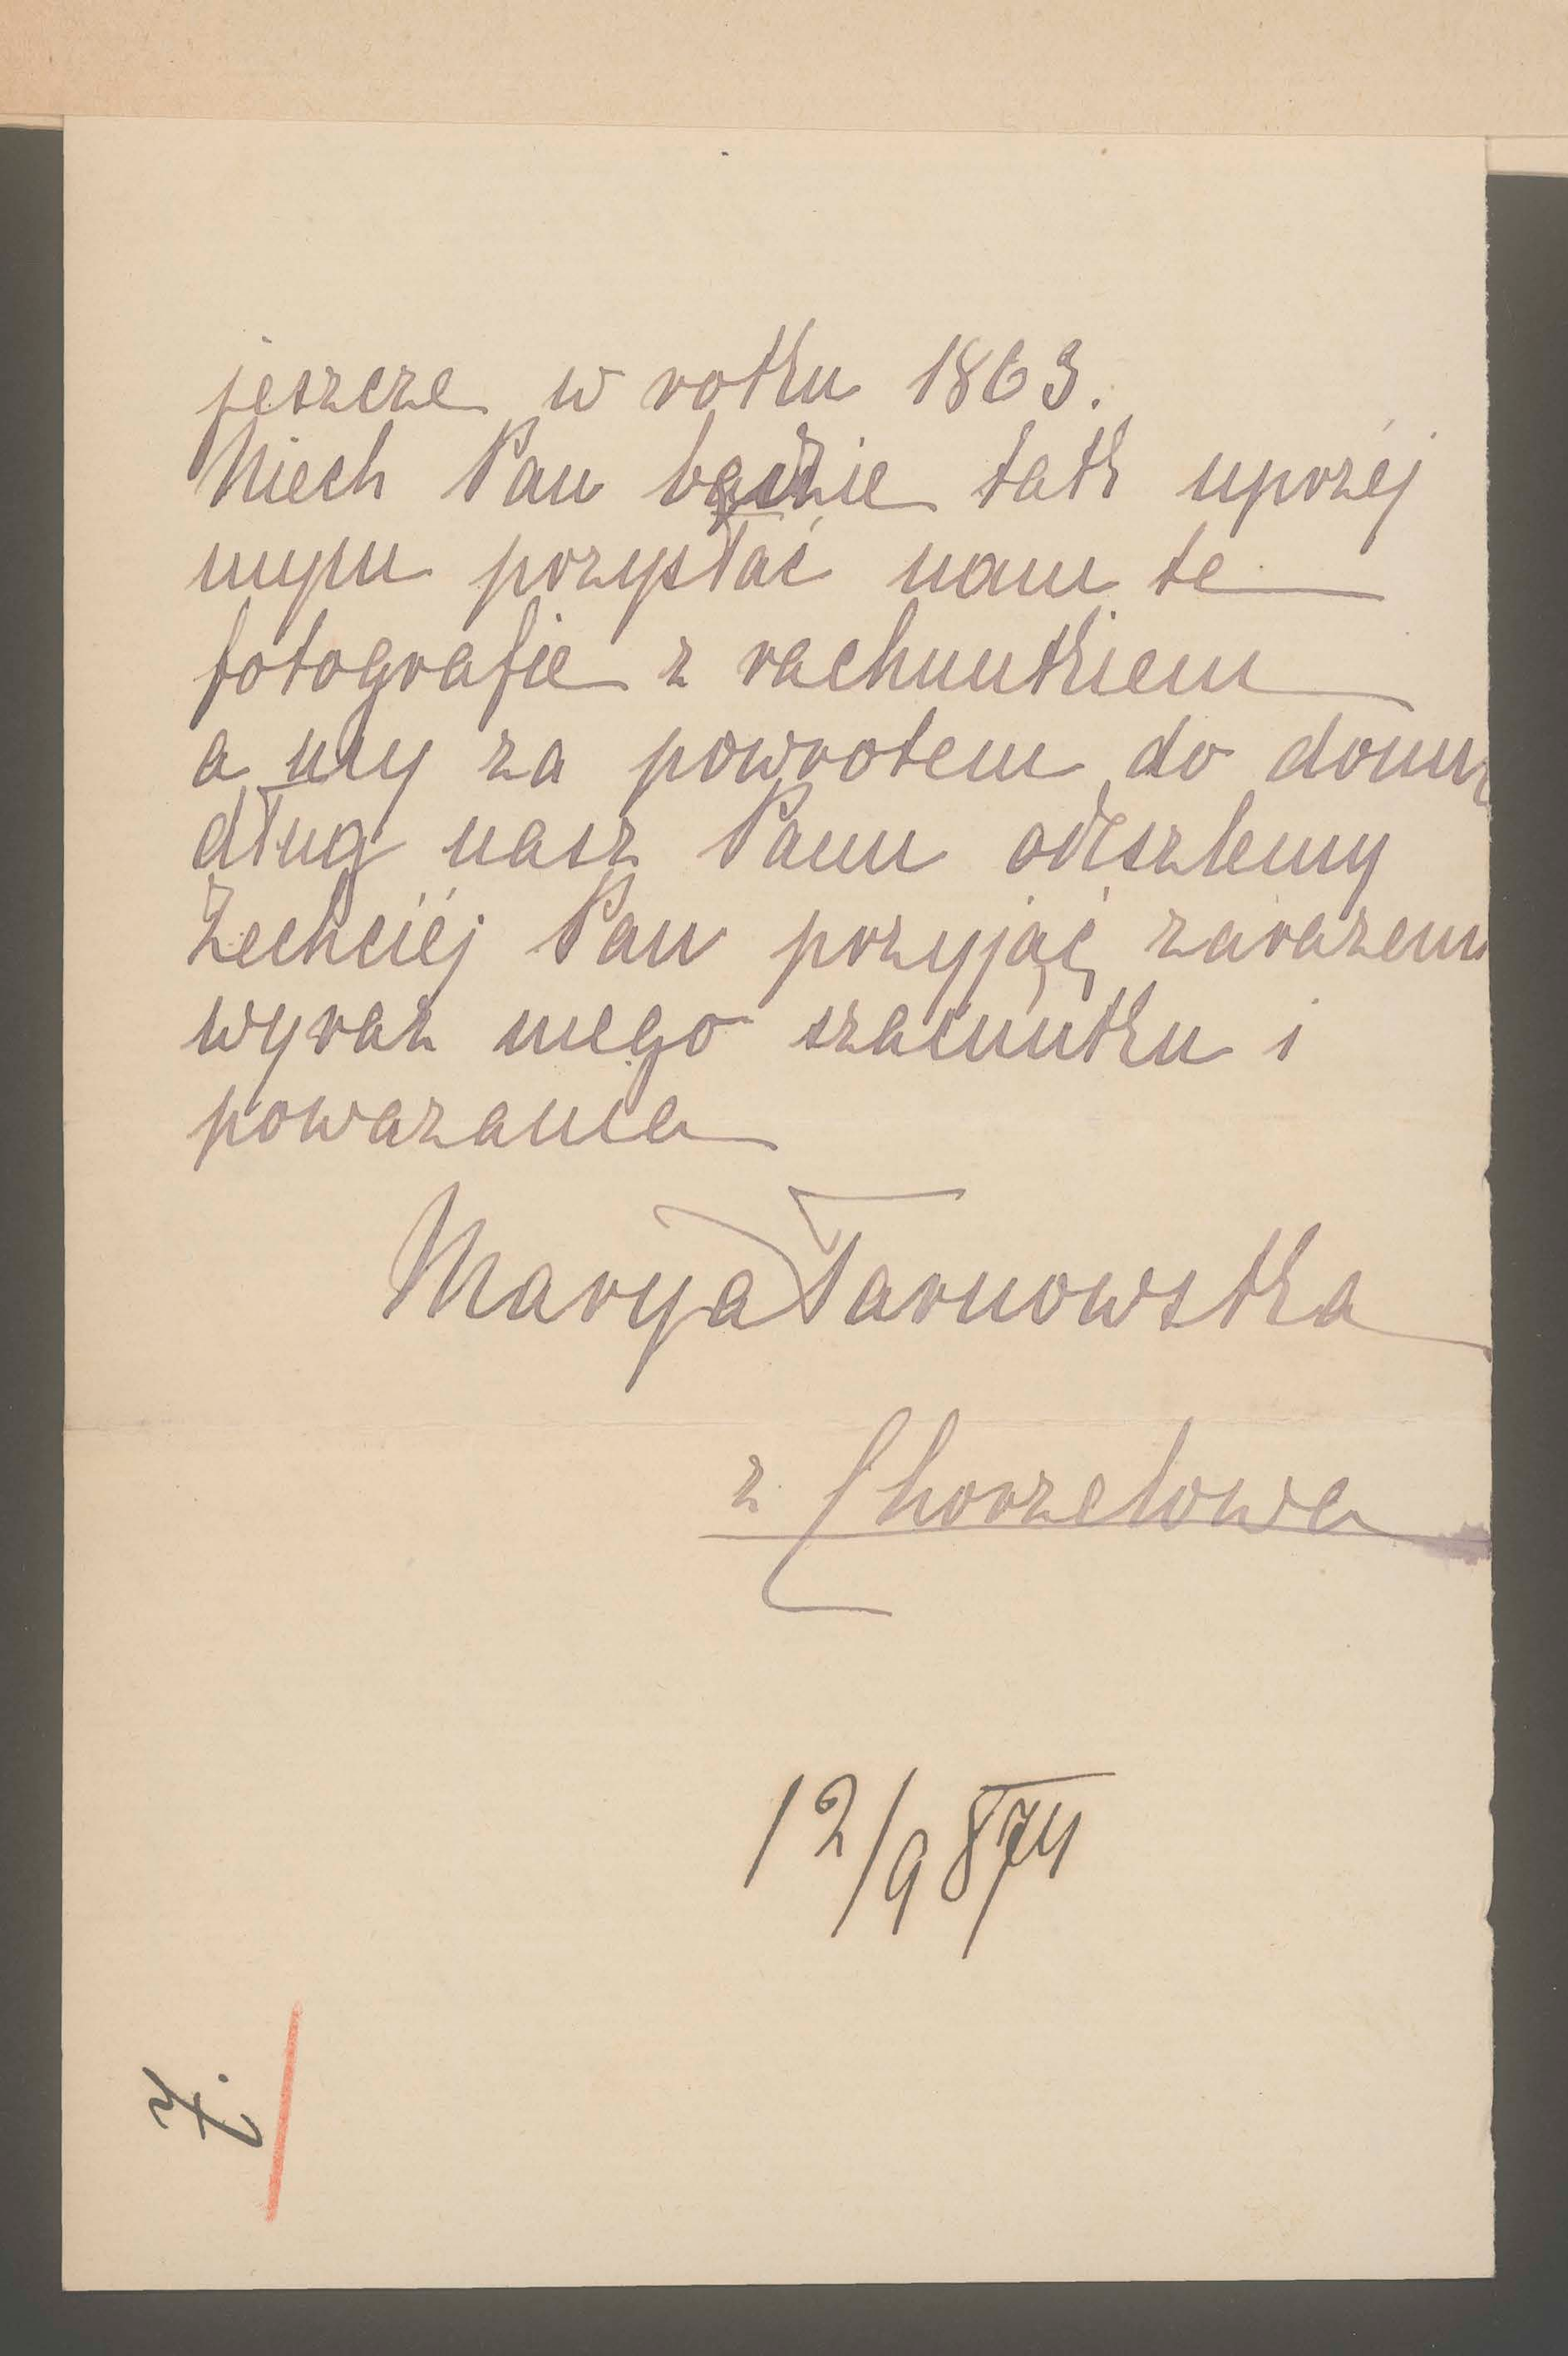 jeszcze w rokku 1863.
Niech Pan będzie tak uprzéj
mym przysłać nam te
fotografie z rachunkiem
a my za powrotem do domu
dług nasz Panu odeszlemy
Zechciéj Pan przyjąć zarazem
wyraz mego szacunku i
powazania
Marya Tarnowska
z Chorzelowa
12/9 874
7.